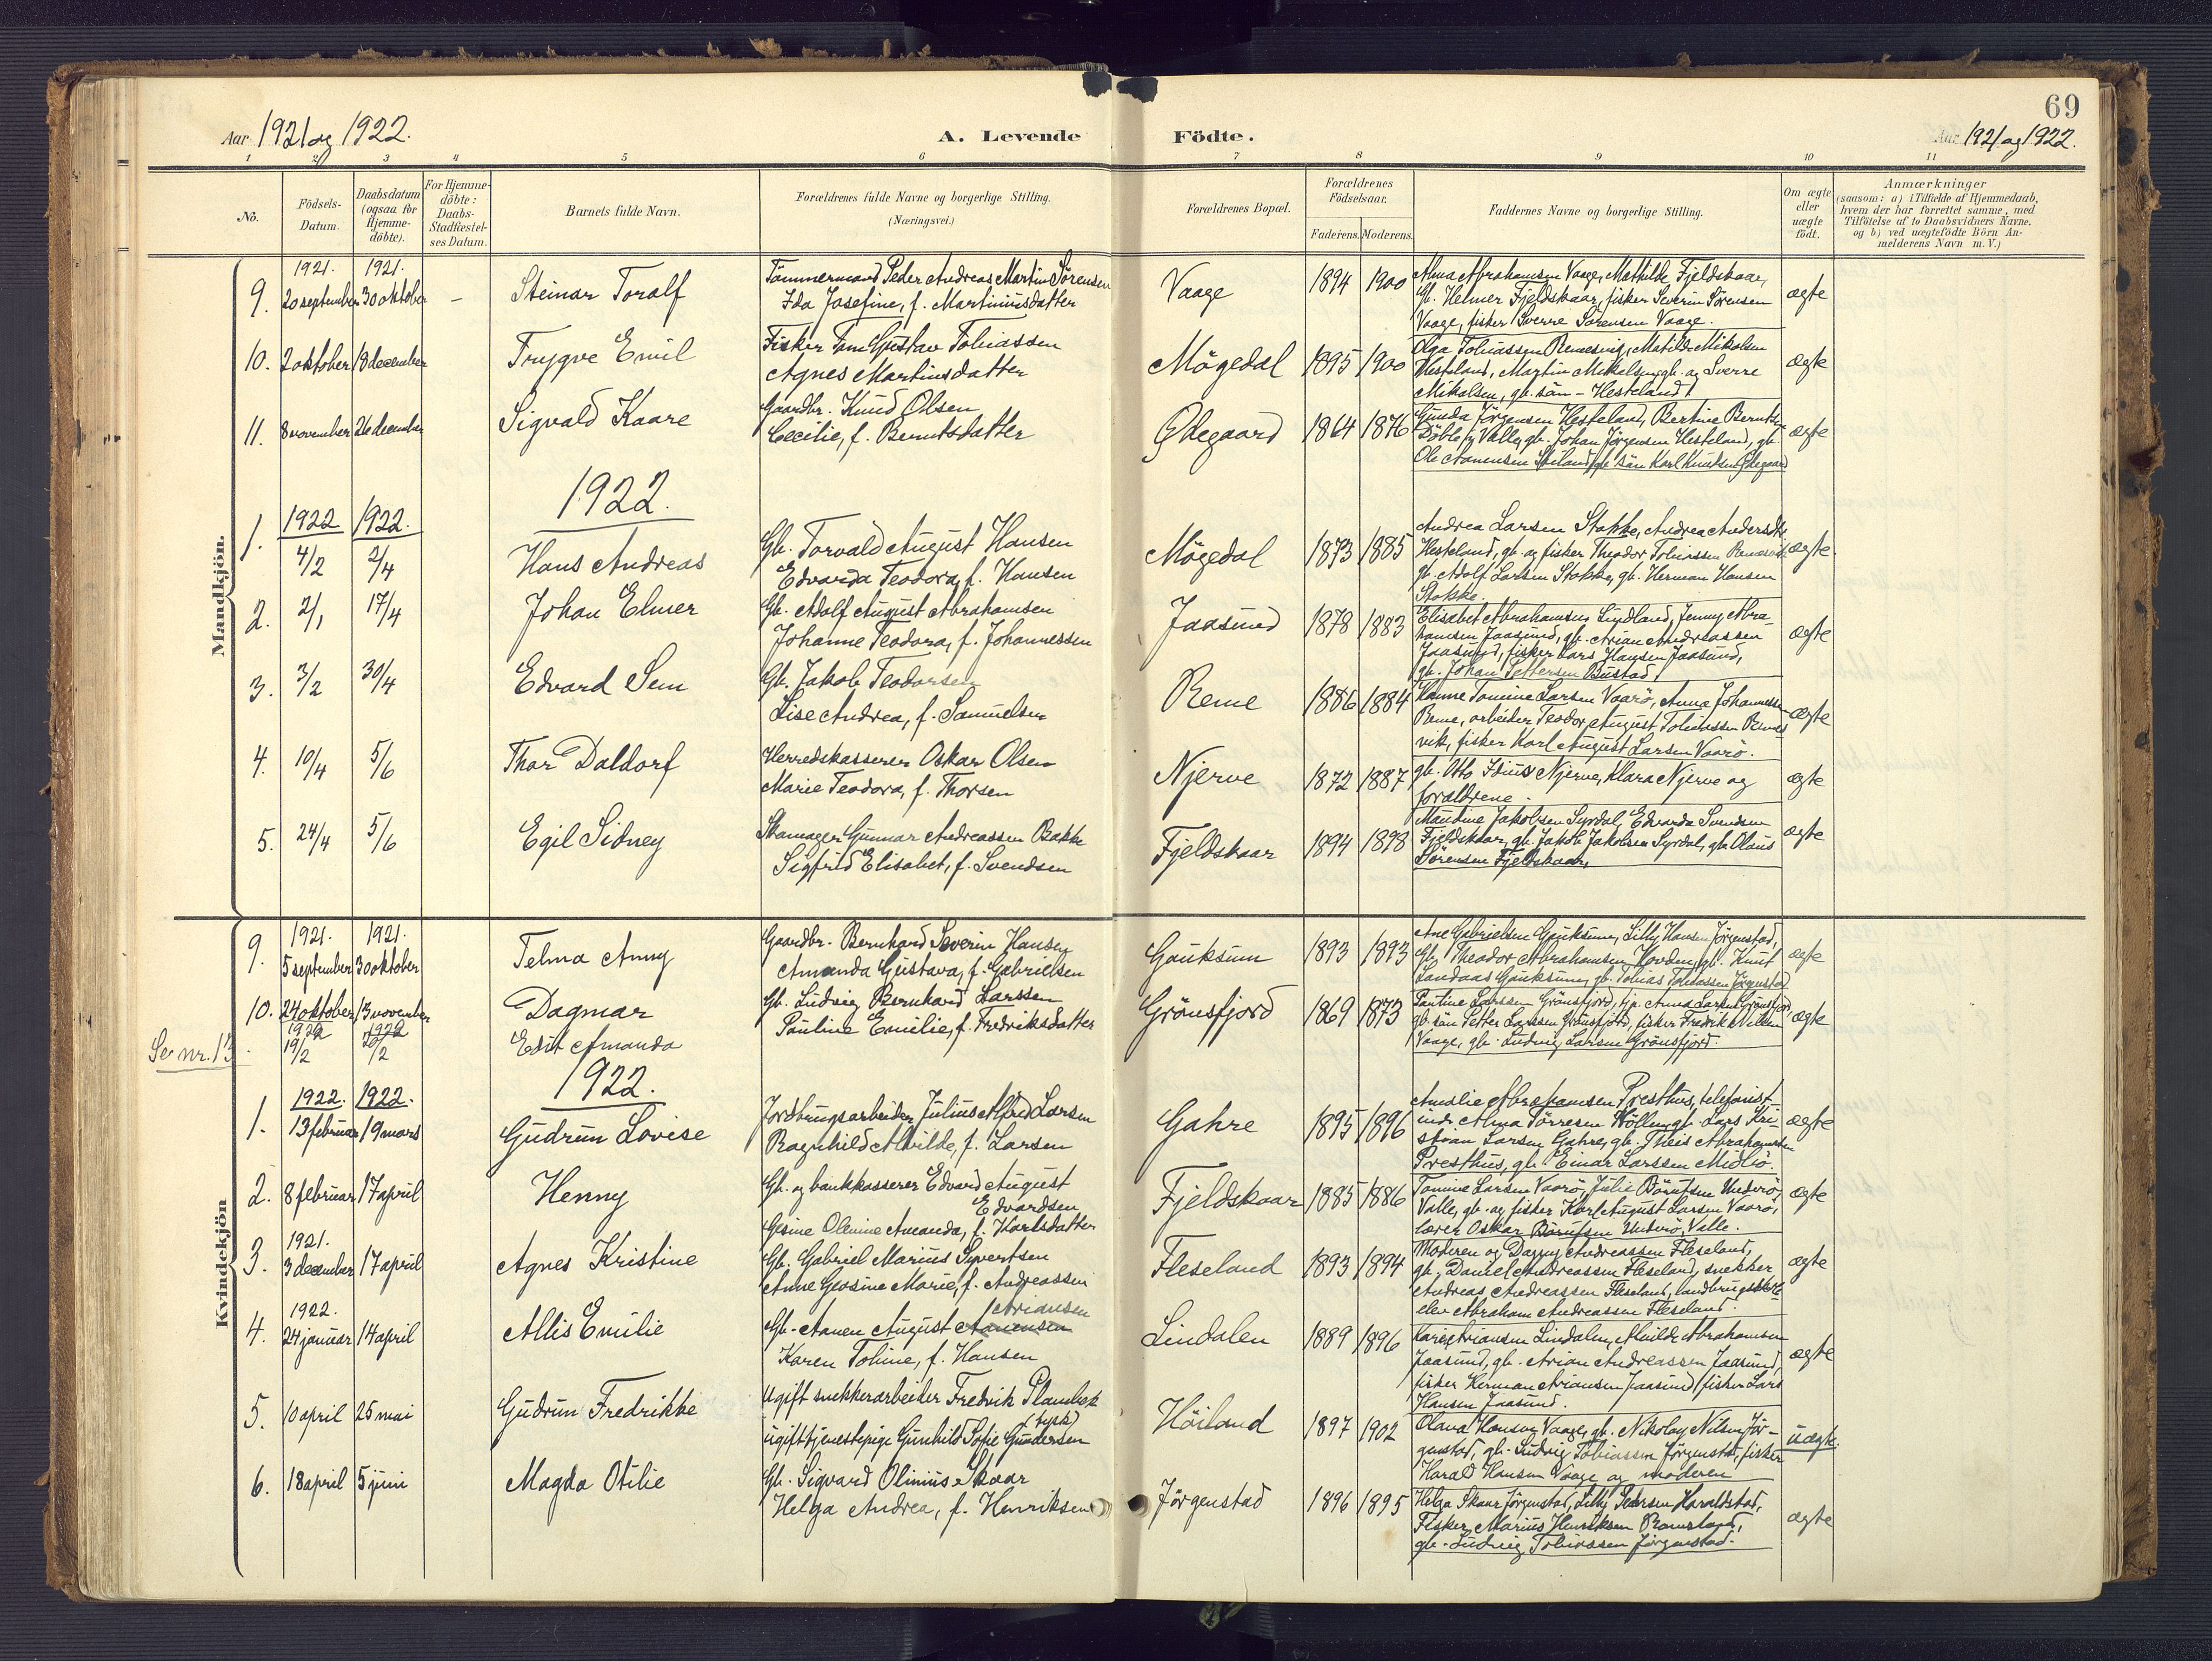 69
Aar 1921 og 1922.
A. Levende Födte.
Aar 1921 og 1922.
1 2 3 4 5 6 7 8 9 10 11
Nö.
Födsels-Datum.
Daabsdatum (ogsaa for Hjemme-döbte).
For Hjemme-döbte: Daabs-Stadfæstel-ses Datum.
Barnets fulde Navn.
Forældrenes fulde Navne og borgerlige Stilling.
(Næringsvei.)
Forældrenes Bopæl.
Forældrenes Födselsaar.
Faderens. Moderens.
Faddernes Navne og borgerlige Stilling.
Om ægte eller uægte födt.
Anmærkninger
(saasom: a) i Tilfælde af Hjemmedaab,
hvem der har forrettet samme, med
Tilföielse af to Daabsvidners Navne,
og b) ved uægtefödte Börn An-
melderens Navn m. V.)
Mandkjön.
1921. 1921.
9. 20 september 30 oktober – Steinar Toralf
Tömmermand Peder Andreas Martin Sörensen
Ida Josefine, f. Martiniusdatter
Vaage 1894 1900
Alma Abrahamsen Vaage, Mathilde Fjeldskaar,
Gb. Helmer Fjeldskaar, fisker Severin Sörensen
Vaage, fisker Sverre Sörensen Vaage.
ægte
10. 2 oktober 18 december Trygve Emil
Fisker Tom Gustav Tobiassen
Agnes Martinsdatter
Mögedal 1895 1900
Olga Tobiassen Remesvig, Matilde Mikalsen
Hesteland, Martin Mikalsen, gb. og Sverre
Mikalsen, gb. sön – Hesteland
ægte
11. 8 november 26 december Sigvald Kaare
Gaardbr. Knud Olsen
Cecilie, f. Berntsdatter
Ödegaard 1864 1876
Gunda Jörgensen Hesteland, Bertine Bernts
Valle, gb. Johan Jörgensen Hesteland, gb.
Ole Aanensen gb. sön Karl Knudsen Ödegaard
ægte
1922.
1922 1922.
1. 4/2 2/4 Hans Andreas
Gb. Torvald August Hansen
Edvarda Teodora, f. Hansen
Mögedal 1873 1885
Andrea Larsen Stokke, Andrea Andersdtr.
Hesteland, gb. og fisker Theodor Tobiassen
gb. Adolf Larsen Stokke, gb. Herman Hansen
Stokke.
ægte.
2. 2/1 17/4 Johan Elmer
Gb. Adolf August Abrahamsen
Johanne Teodora, f. Johannessen
Jaasund 1878 1883
Elisabet Abrahamsen Lindland, Jenny Abra-
hamsen Jaasund, gb. Arian Andreassen
Jaasund, fisker Lars Hansen Jaasund,
gb. Johan Pettersen Bustad
ægte
3. 3/2 30/4 Edvard Sem
Gb. Jakob Teodorsen
Lise Andrea, f. Samuelsen
Reme 1886 1884
Hanne Tomine Larsen Vaarö, Anna Johannessen
Reme, arbeider Teodor August Tobiassen Remes
vik, fisker Karl August Larsen Vaarö.
ægte
4. 10/4 5/6 Thor Daldorf
Herredskasserer Oskar Olsen
Marie Teodora, f. Thorsen
Njerve 1872 1887
gb. Otto Idius Njerve, Klara Njerve og
foreldrene.
ægte
5. 24/4 5/6 Egil Sidney
Skomager Gunnar Andreassen Bakke
Sigfrid Elisabet, f. Svendsen
Fjeldskaar 1894 1898
Maudine Jakobsen Syrdal, Edvarda Svendsen
Fjeldskaar, gb. Jakob Jakobsen Syrdal, gb. Olaus
Sörensen Fjeldskaar,
ægte
Kvindekjön
1921. 1921.
9. 5 september 30 oktober Telma Anny
Gaardbr. Bernhard Severin Hansen
Amanda Gustava, f. Gabrielsen
Gauksum 1893 1893
Ane Gabrielsen Gauksum, Lilly Hansen Jörgenstad,
Gb. Theodor Abrahamsen Hovden, gb. Knut
Landaas Gauksum, gb. Tobias Tobiassen Jörgenstad
ægte
10. 24 oktober 13 november Dagmar
Gb. Ludvig Bernhard Larssen
Pauline Emilie, f. Fredriksdatter
Grönsfjord 1869 1873
Pauline Larssen Grönsfjord, tjp. Anna Larsen Grönsfjord
gb. sön Petter Larssen Grönsfjord, fisker Fredrik Nilsen
Vaage, gb. Ludvig Larsen Grönsfjord.
ægte
Se nr. 13.
1922 1922
19/2 /2 Edit Amanda
1922.
1922. 1922.
1. 13 februar 19 mars Gudrun Lovise
Jordbrugsarbeider Julius Alfred Larsen
Ragnhild Alvilde, f. Larsen
Gahre 1895 1896
Amalie Abrahamsen Presthus, telefonist-
inde Alma Törresen Höllen, gb. Lars Kri-
stian Larsen Gahre, gb. Theis Abrahamsen
Presthus, gb. Einar Larssen Midbö.
ægte
2. 8 februar 17 april Henny
Gb. og bankkasserer Edvard August
Edvardsen
Gesine Olenine Amanda, f. Karlsdatter
Fjeldskaar 1885 1886
Tomine Larsen Vaarö, Julie Börufsen Underö,
Valle, gb. og fisker Karl August Larsen Vaarö,
lærer Oskar Börufsen Underö, Valle.
ægte
1921.
3. 3 december 17 april Agnes Kristine
Gb. Gabriel Marius Syvertsen
Anne Gesine Marie, f. Andreassen
Fleseland 1893 1894
Moderen og Dagny Andreassen Fleseland,
gb. Daniel Andreassen Fleseland, snekker
Andreas Andreassen Fleseland, landbrugsskole
elev Abraham Andreassen Fleseland.
ægte
1922.
4. 24 januar 14 april Allis Emilie
Ariansen
Gb. Aanen August Aanensen
Karen Tobine, f. Hansen
Lindalen 1889 1896
Karen Ariansen Lindalen, Alvilde Abrahamsen
Jaasund, gb. Arian Andreassen Jaasund,
fisker Herman Ariansen Jaasund, fisker Lars
Hansen Jaasund.
ægte
5. 10 april 25 mai Gudrun Fredrikke
Ugift snekkerarbeider Fredrik Plambeck
(tysk)
ugift tjenestepige Gunhild Sofie Gundersen
Höiland 1897 1902
Olava Hansen Vaage, gb. Nikolay Nilsen Jör-
genstad, gb. Ludvig Tobiassen Jörgenstad, fisker
Harald Hansen Vaage og moderen
uægte.
6. 18 april 5 juni Magda Otilie
Gb. Sigvard Olinius Skaar
Helga Andrea, f. Henriksen
Jörgenstad 1896 1895
Helga Skaar Jörgenstad, Lilly Pedersen Haraldstad,
Fisker Marius Henriksen Ramsland,
gb. Ludvig Tobiassen Jörgenstad.
ægte